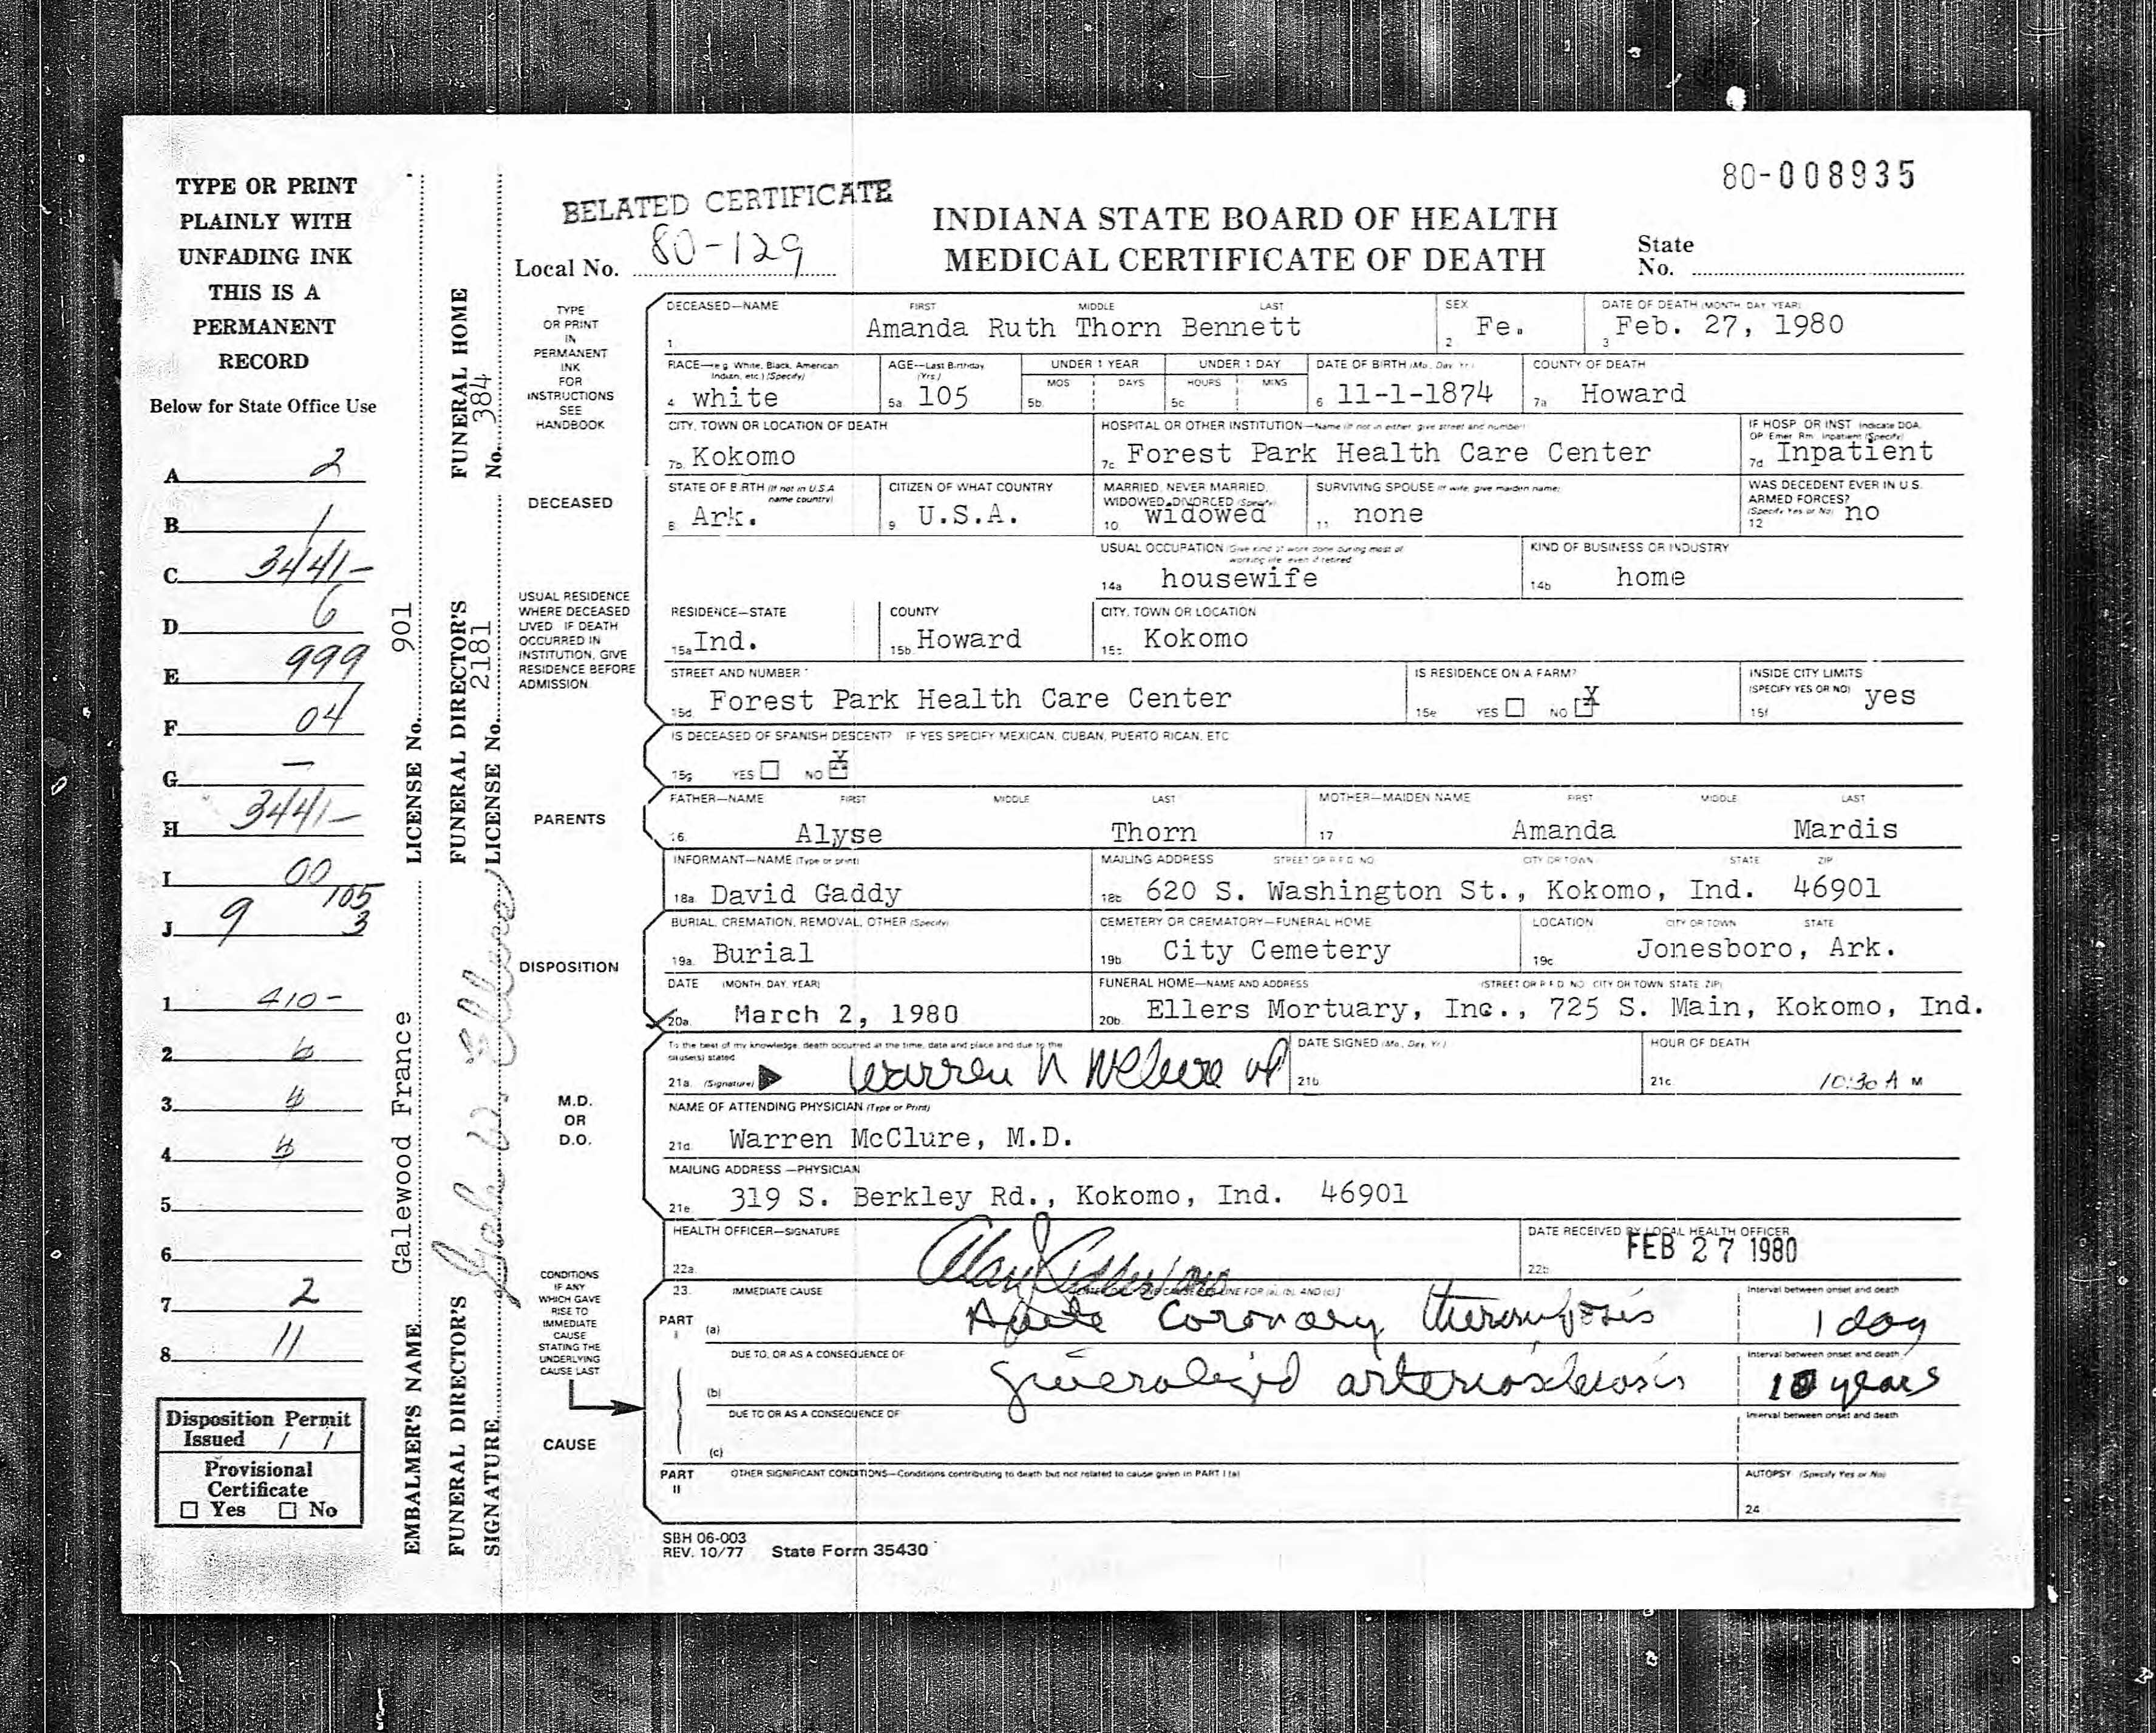 80-008935
BELATED CERTIFICATE
INDIANA STATE BOARD OF HEALTH
MEDICAL CERTIFICATE OF DEATH
Local No. 80-129
State No.
TYPE OR PRINT
PLAINLY WITH
UNFADING INK
THIS IS A
PERMANENT
RECORD
Below for State Office Use
A 2
B 1
C 3441-
D 6
E 999
F 04
G —
H 3441-
I 00
J 9 105 3
1 410-
2 6
3 4
4 4
5
6
7 2
8 11
Disposition Permit
Issued / /
Provisional
Certificate
☐ Yes ☐ No
EMBALMER'S NAME Galewood France LICENSE No. 901
FUNERAL DIRECTOR'S SIGNATURE
FUNERAL DIRECTOR'S LICENSE No. 2181
FUNERAL HOME No. 384
TYPE
OR PRINT
IN
PERMANENT
INK
FOR
INSTRUCTIONS
SEE
HANDBOOK
DECEASED
USUAL RESIDENCE
WHERE DECEASED
LIVED. IF DEATH
OCCURRED IN
INSTITUTION, GIVE
RESIDENCE BEFORE
ADMISSION.
PARENTS
DISPOSITION
M.D.
OR
D.O.
CONDITIONS
IF ANY
WHICH GAVE
RISE TO
IMMEDIATE
CAUSE
STATING THE
UNDERLYING
CAUSE LAST
CAUSE
DECEASED—NAME FIRST MIDDLE LAST SEX DATE OF DEATH (MONTH, DAY, YEAR)
1. Amanda Ruth Thorn Bennett 2 Fe. 3 Feb. 27, 1980
RACE—e.g. White, Black, American Indian, etc.) (Specify) AGE—Last Birthday (Yrs.) UNDER 1 YEAR UNDER 1 DAY DATE OF BIRTH (Mo., Day, Yr.) COUNTY OF DEATH
MOS DAYS HOURS MINS
4. white 5a. 105 5b. 5c 6 11-1-1874 7a Howard
CITY, TOWN OR LOCATION OF DEATH HOSPITAL OR OTHER INSTITUTION—Name (If not in either, give street and number) IF HOSP. OR INST. Indicate DOA, OP Emer. Rm. Inpatient (Specify)
7b. Kokomo 7c. Forest Park Health Care Center 7d Inpatient
STATE OF BIRTH (If not in U.S.A. name country) CITIZEN OF WHAT COUNTRY MARRIED, NEVER MARRIED, WIDOWED, DIVORCED (Specify) SURVIVING SPOUSE (If wife, give maiden name) WAS DECEDENT EVER IN U.S. ARMED FORCES? (Specify Yes or No)
8. Ark. 9. U.S.A. 10 widowed 11. none 12 no
USUAL OCCUPATION (Give kind of work done during most of working life, even if retired) KIND OF BUSINESS OR INDUSTRY
14a housewife 14b home
RESIDENCE—STATE COUNTY CITY, TOWN OR LOCATION
15a Ind. 15b. Howard 15c Kokomo
STREET AND NUMBER IS RESIDENCE ON A FARM? INSIDE CITY LIMITS (SPECIFY YES OR NO)
15d. Forest Park Health Care Center 15e YES ☐ NO ☐ X 15f yes
IS DECEASED OF SPANISH DESCENT? IF YES SPECIFY MEXICAN, CUBAN, PUERTO RICAN, ETC
15g YES ☐ NO ☐ X
FATHER—NAME FIRST MIDDLE LAST MOTHER—MAIDEN NAME FIRST MIDDLE LAST
16. Alyse Thorn 17 Amanda Mardis
INFORMANT—NAME (Type or print) MAILING ADDRESS STREET OR R.F.D. NO. CITY OR TOWN STATE ZIP
18a. David Gaddy 18b 620 S. Washington St., Kokomo, Ind. 46901
BURIAL, CREMATION, REMOVAL, OTHER (Specify) CEMETERY OR CREMATORY—FUNERAL HOME LOCATION CITY OR TOWN STATE
19a. Burial 19b. City Cemetery 19c Jonesboro, Ark.
DATE (MONTH, DAY, YEAR) FUNERAL HOME—NAME AND ADDRESS (STREET OR R.F.D. NO. CITY OR TOWN STATE ZIP)
20a. March 2, 1980 20b. Ellers Mortuary, Inc., 725 S. Main, Kokomo, Ind.
To the best of my knowledge, death occurred at the time, date and place and due to the cause(s) stated DATE SIGNED (Mo., Day, Yr.) HOUR OF DEATH
21a. (Signature) Warren N McClure MD 21b 21c 10:30 A M
NAME OF ATTENDING PHYSICIAN (Type or Print)
21d. Warren McClure, M.D.
MAILING ADDRESS —PHYSICIAN
21e. 319 S. Berkley Rd., Kokomo, Ind. 46901
HEALTH OFFICER—SIGNATURE DATE RECEIVED BY LOCAL HEALTH OFFICER
22a. 22b. FEB 27 1980
23. IMMEDIATE CAUSE [ENTER ONLY ONE CAUSE PER LINE FOR (a), (b), AND (c)] Interval between onset and death
PART I (a) Acute Coronary thrombosis 1 day
DUE TO, OR AS A CONSEQUENCE OF: Interval between onset and death
(b) generalized arteriosclerosis 10 years
DUE TO OR AS A CONSEQUENCE OF: Interval between onset and death
(c)
PART II OTHER SIGNIFICANT CONDITIONS—Conditions contributing to death but not related to cause given in PART I (a) AUTOPSY (Specify Yes or No)
24
SBH 06-003
REV. 10/77 State Form 35430